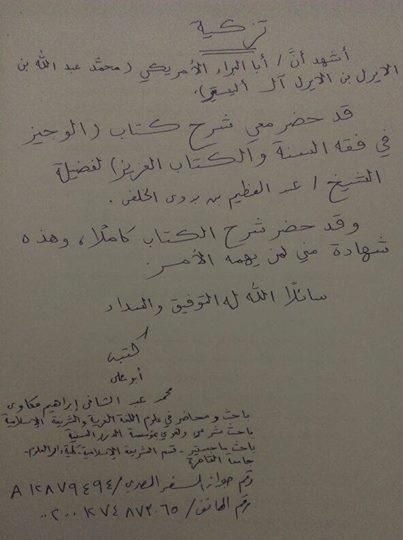 تزكية
أشهد أنَّ / أبا البراء الأمريكي (محمَّد عبد الله بن
الايرل بن الايرل آل
قد حضر معي شرح كتاب (الوجيز
في فقه السنة والكتاب العزيز) لفضيلة
الشيخ / عبد العظيم بن بدوي الخلفي.
وقد حضر شرح الكتاب كاملًا، وهذه
شهادة مني لمن يهمه الأمر
سائلًا الله له التوفيق والسداد
كتبه
أبو علي
محمد عبد الشافي إبراهيم مكاوي
باحث ومحاضر في علوم اللغة العربية والشريعة الإسلامية
باحث شرعي ولغوي بمؤسسة الدرر السنية
باحث ماجستير - قسم الشريعة الإسلامية كلية دار العلوم-
جامعة القاهرة
رقم جواز السفر المصري / A ١٢٨٧٩٤٩٤
رقم الهاتف /